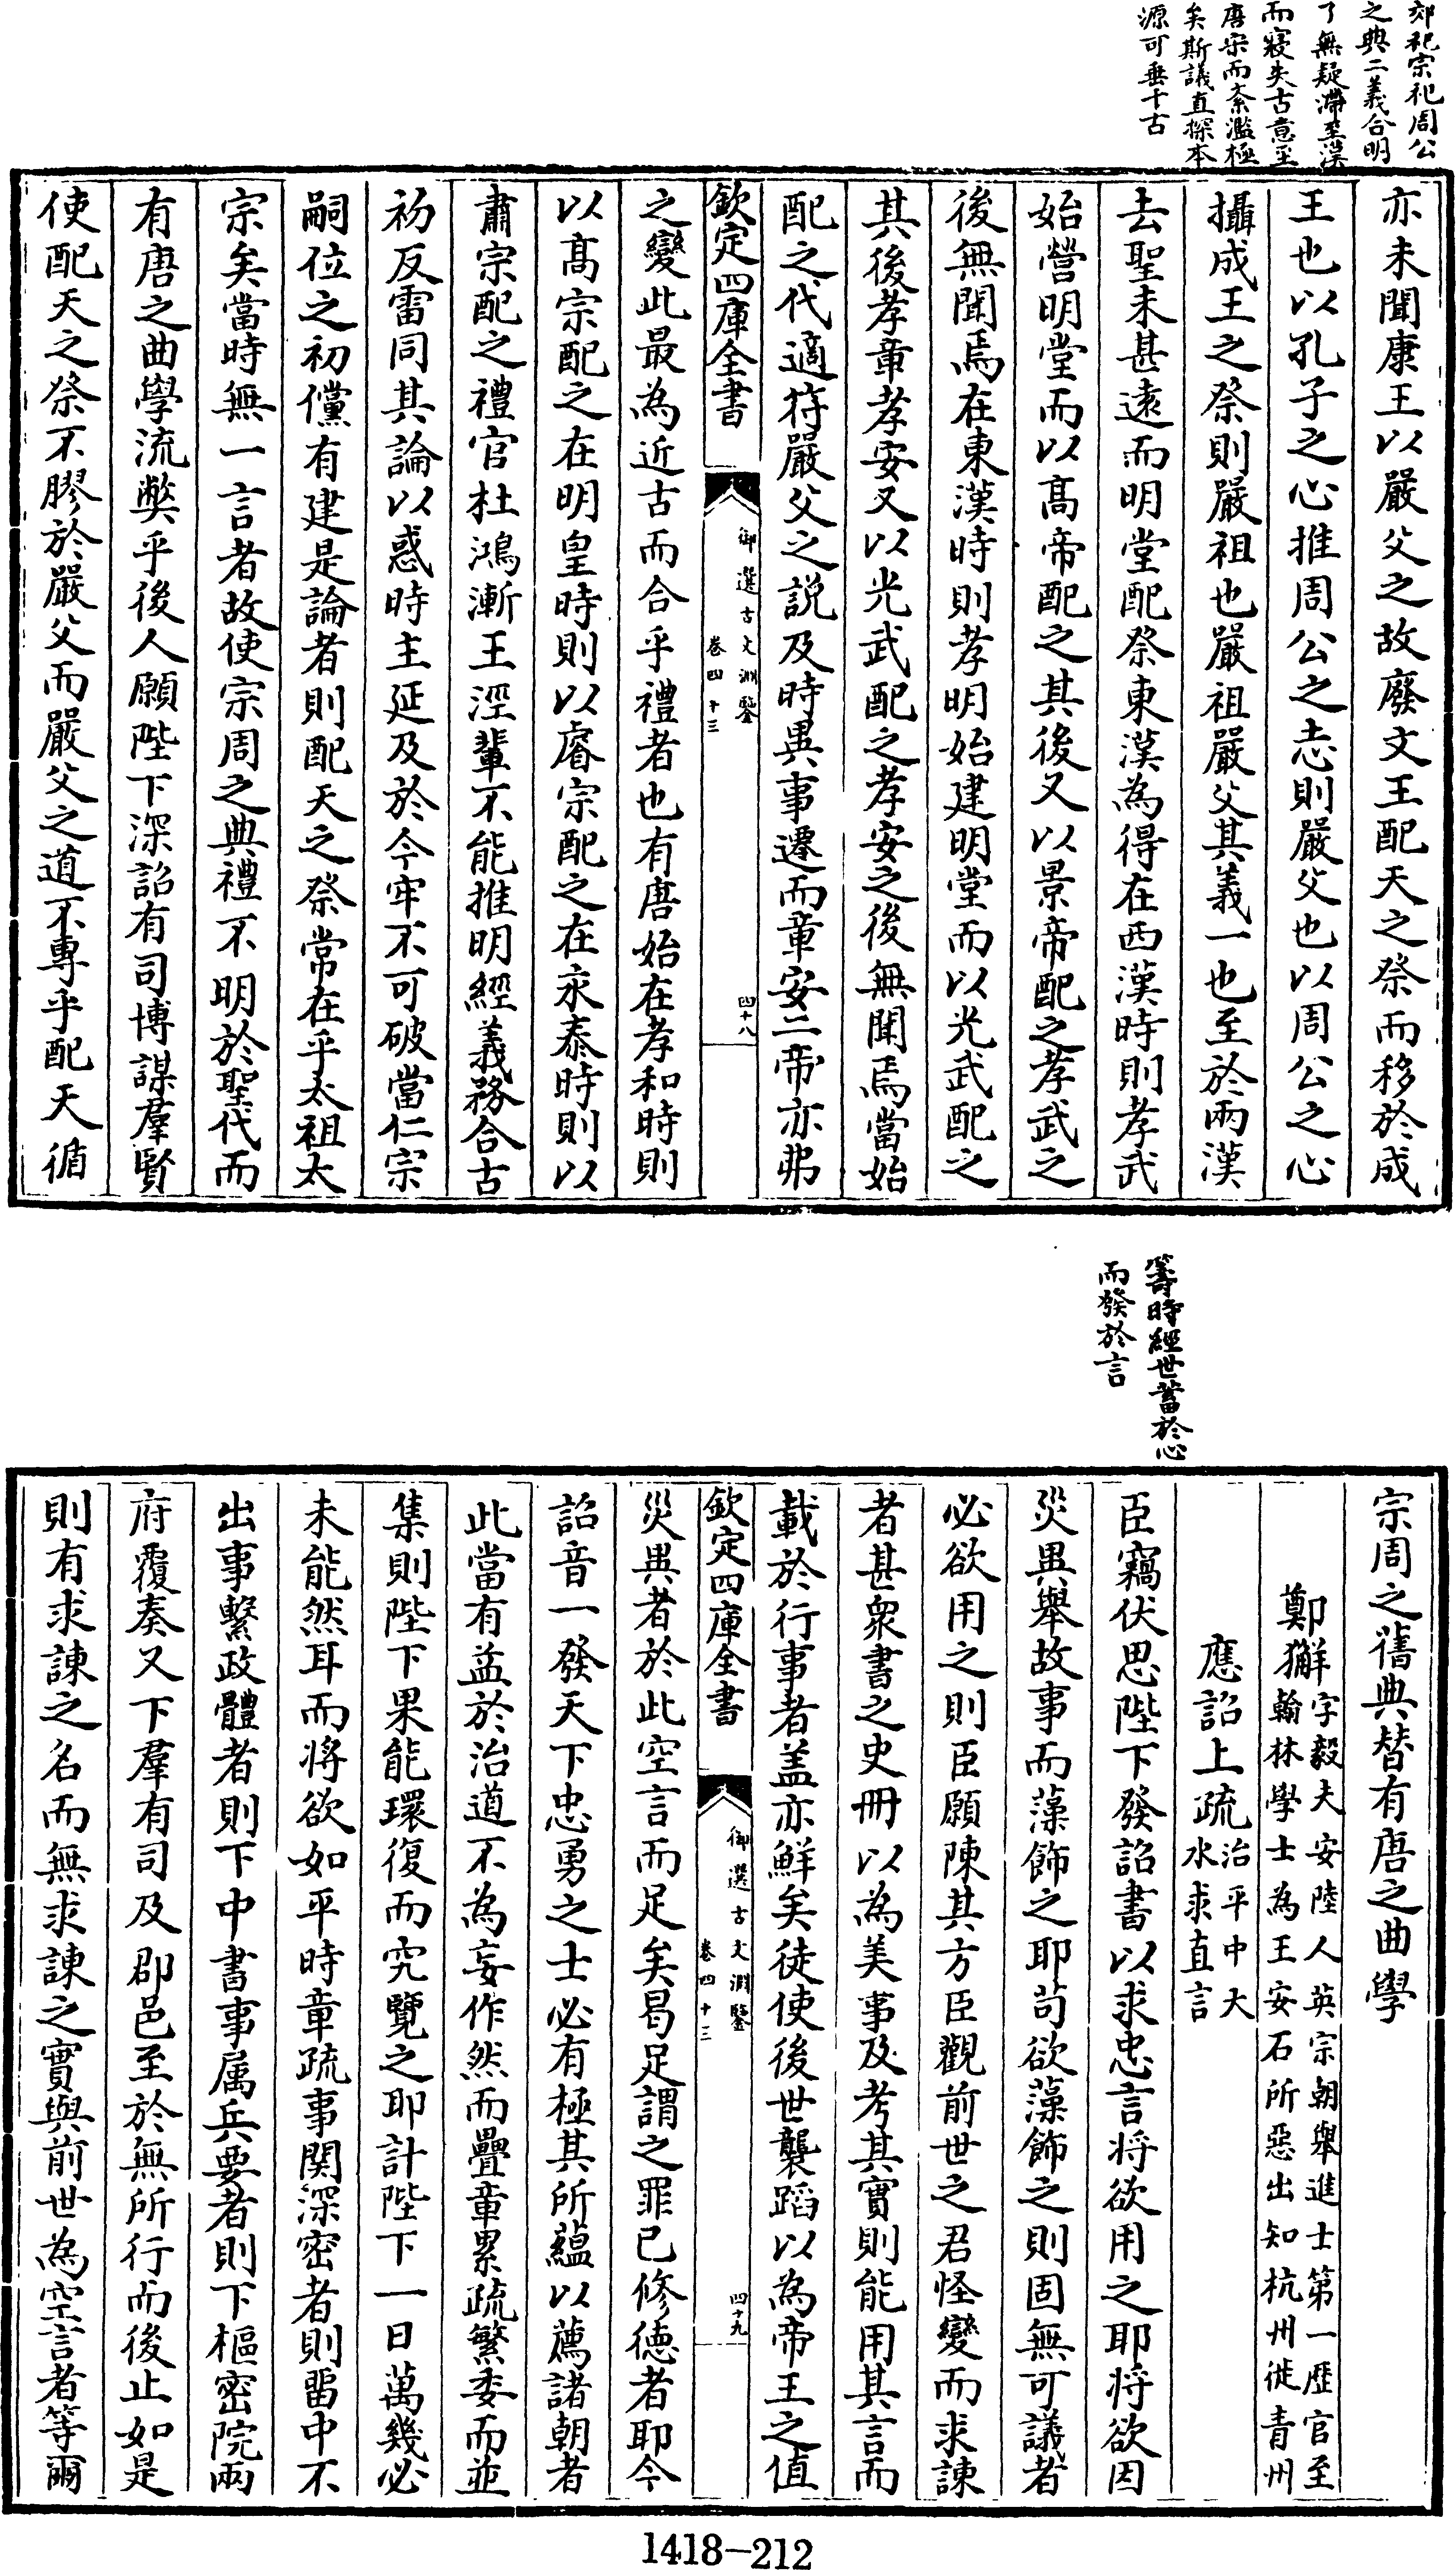 郊祀宗祀周公
之典二義合明
了無疑滯至漢
而寖失古意至
唐宋而紊濫極
矣斯議直探本
源可垂千古
亦未聞康王以嚴父之故廢文王配天之祭而移於成
王也以孔子之心推周公之志則嚴父也以周公之心
攝成王之祭則嚴祖也嚴祖嚴父其義一也至於兩漢
去聖未甚遠而明堂配祭東漢為得在西漢時則孝武
始營明堂而以高帝配之其後又以景帝配之孝武之
後無聞焉在東漢時則孝明始建明堂而以光武配之
其後孝章孝安又以光武配之孝安之後無聞焉當始
配之代適符嚴父之說及時異事遷而章安二帝亦弗
欽定四庫全書
御選古文淵鑒
卷四十三
四十八
之變此最為近古而合乎禮者也有唐始在孝和時則
以高宗配之在明皇時則以睿宗配之在永泰時則以
肅宗配之禮官杜鴻漸王涇輩不能推明經義務合古
初反雷同其論以惑時主延及於今牢不可破當仁宗
嗣位之初儻有建是論者則配天之祭常在乎太祖太
宗矣當時無一言者故使宗周之典禮不明於聖代而
有唐之曲學流弊乎後人願陛下深詔有司博謀羣賢
使配天之祭不膠於嚴父而嚴父之道不專乎配天循
籌時經世蓄於心
而發於言
宗周之舊典替有唐之曲學
鄭獬字毅夫安陸人英宗朝舉進士第一歷官至
翰林學士為王安石所惡出知杭州徙青州
應詔上疏治平中大
水求直言
臣竊伏思陛下發詔書以求忠言將欲用之耶將欲因
災異舉故事而藻飾之耶苟欲藻飾之則固無可議者
必欲用之則臣願陳其方臣觀前世之君怪變而求諫
者甚衆書之史冊以為美事及考其實則能用其言而
載於行事者盖亦鮮矣徒使後世襲蹈以為帝王之值
欽定四庫全書
御選古文淵鑒
卷四十三
四十九
災異者於此空言而足矣曷足謂之罪已修德者耶今
詔音一發天下忠勇之士必有極其所蘊以薦諸朝者
此當有益於治道不為妄作然而疊章累疏繁委而並
集則陛下果能環復而究覽之耶計陛下一日萬幾必
未能然耳而將欲如平時章疏事関深密者則留中不
出事繫政體者則下中書事属兵要者則下樞密院兩
府覆奏又下羣有司及郡邑至於無所行而後止如是
則有求諫之名而無求諫之實與前世為空言者等爾
1418-212